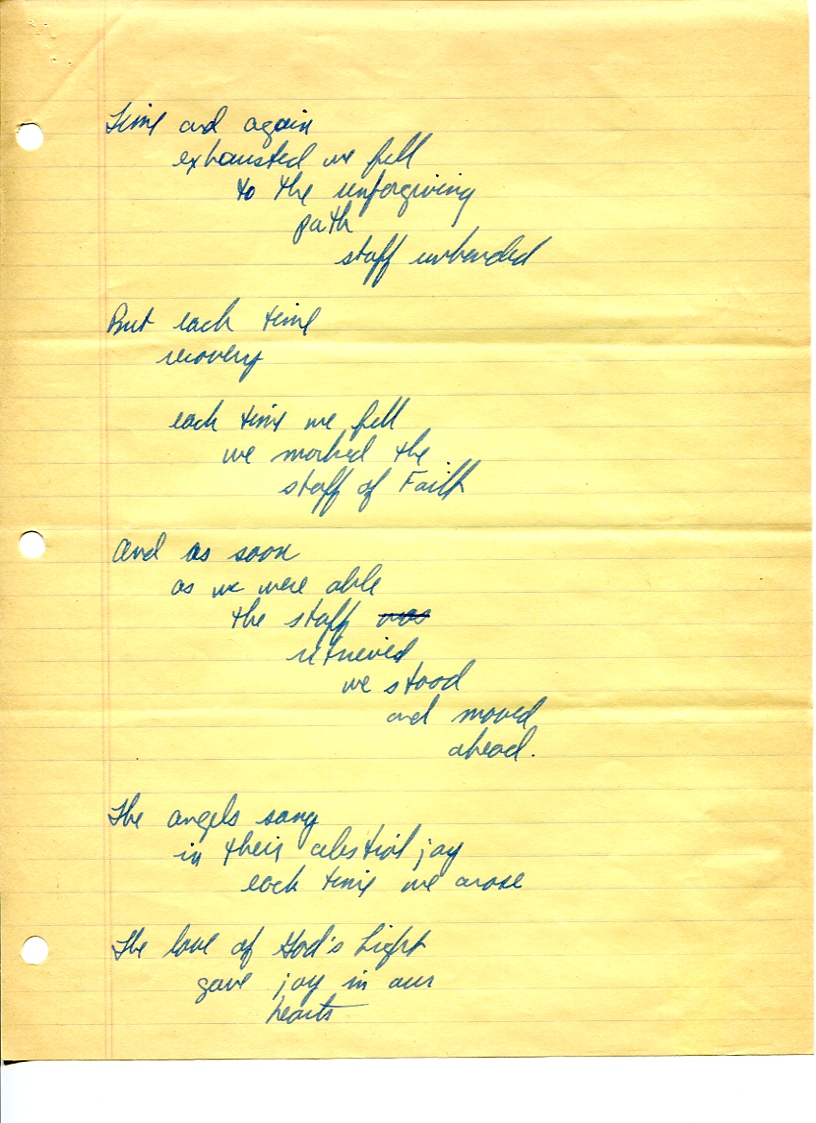 Time and again
exhausted we fell
to the unforgiving
path
staff unhanded
But each time
recovery
each time we fell
we marked the
staff of Faith
And as soon
as we were able
the staff was
retrieved
we stood
and moved
ahead.
The angels sang
in their celestial joy
each time we arose
The love of God's Light
gave joy in our
hearts